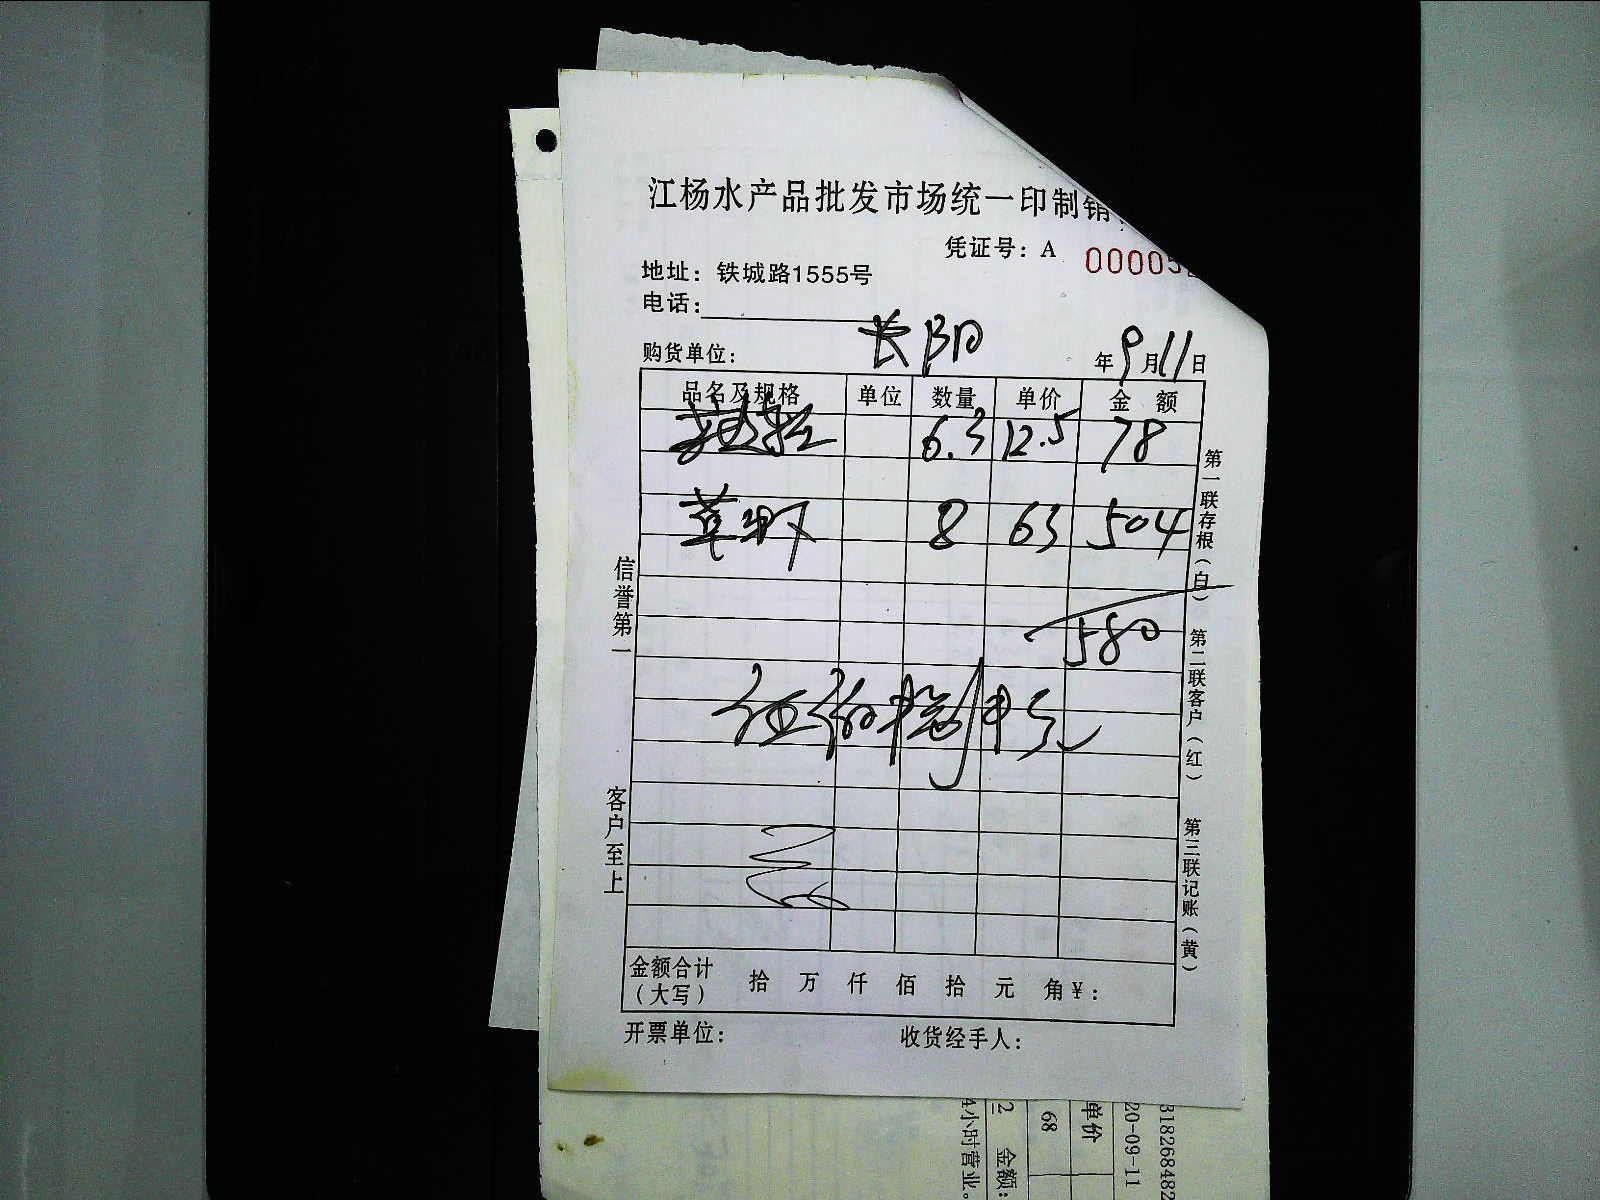 江杨水产品批发市场统一印制销
凭证号：A 00005
地址：铁城路1555号
电话：
购货单位： 长阳 年9月11日
品名及规格 单位 数量 单价 金额
6.3 12.5 78
草虾 8 63 504
580
金额合计（大写） 拾 万 仟 佰 拾 元 角 ¥：
开票单位： 收货经手人：
信誉第一 客户至上
第一联存根（白） 第二联客户（红） 第三联记账（黄）
318268482
20-09-11
单价
68
2 金额：
4小时营业。